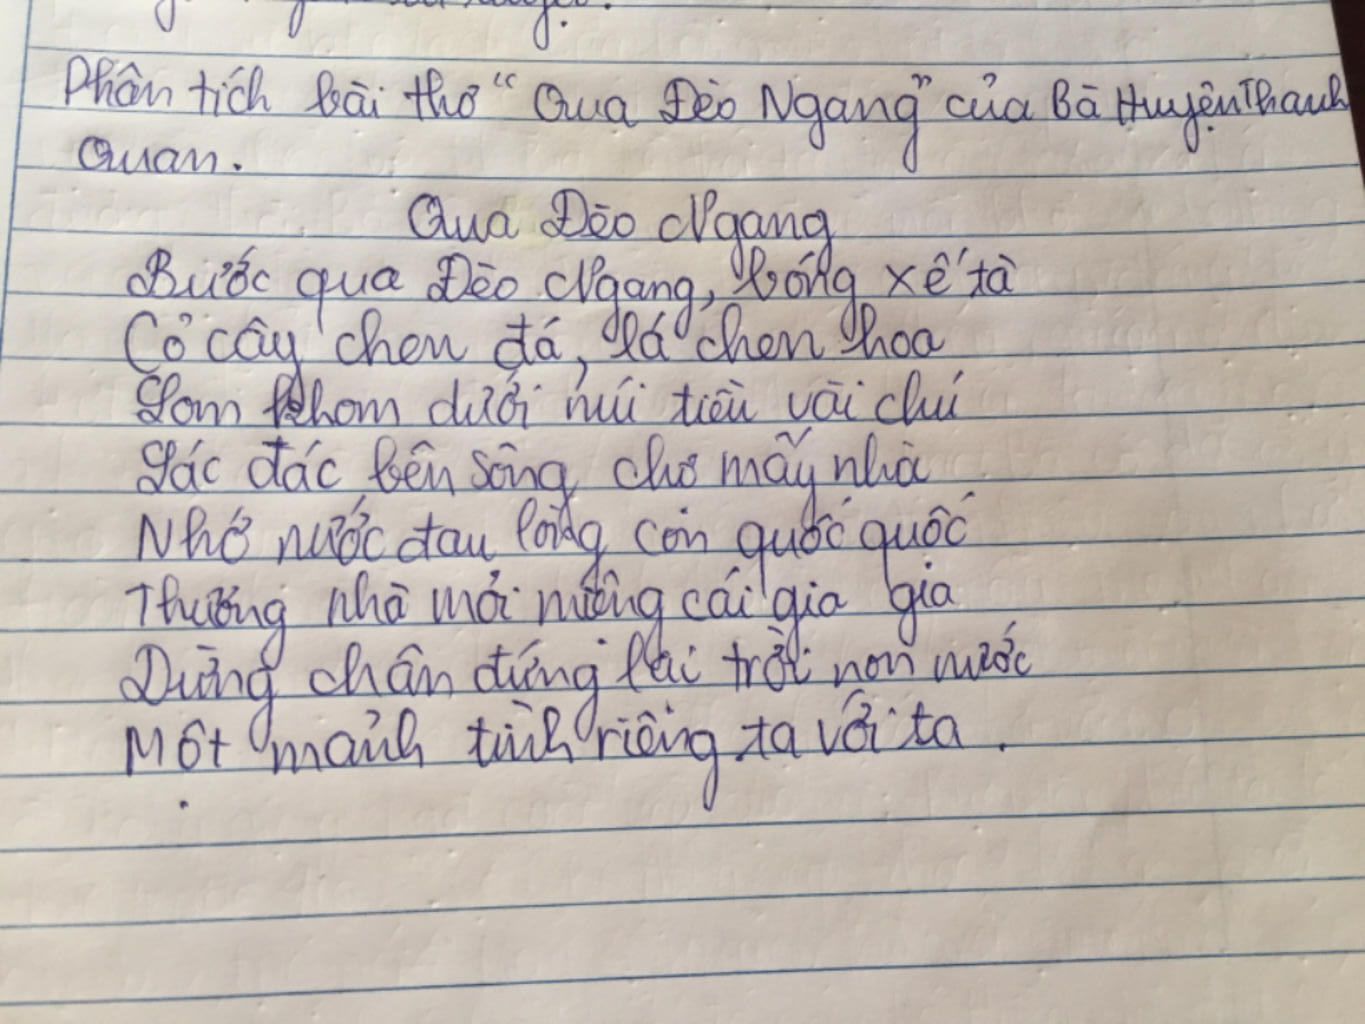 Phân tích bài thơ "Qua Đèo Ngang" của Bà Huyện Thanh
Quan.
Qua Đèo Ngang
Bước qua Đèo Ngang, bóng xế tà
Cỏ cây chen đá, lá chen hoa
Lom khom dưới núi tiều vài chú
Lác đác bên sông chợ mấy nhà
Nhớ nước đau lòng con quốc quốc
Thương nhà mỏi miệng cái gia gia
Dừng chân đứng lại trời non nước
Một mảnh tình riêng ta với ta.